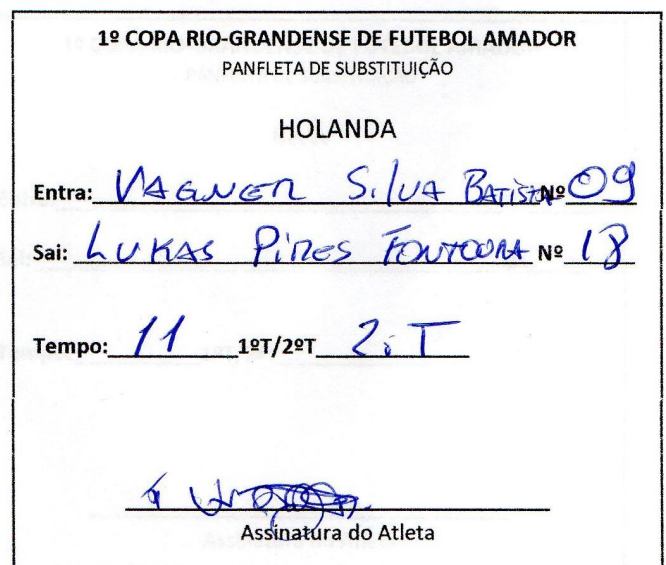 1º COPA RIO-GRANDENSE DE FUTEBOL AMADOR
PANFLETA DE SUBSTITUIÇÃO
HOLANDA
Entra: VAGNER SILVA BATISTA Nº 09
Sai: LUKAS PIRES FONTOURA Nº 18
Tempo: 11 1ºT/2ºT 2:T
Assinatura do Atleta